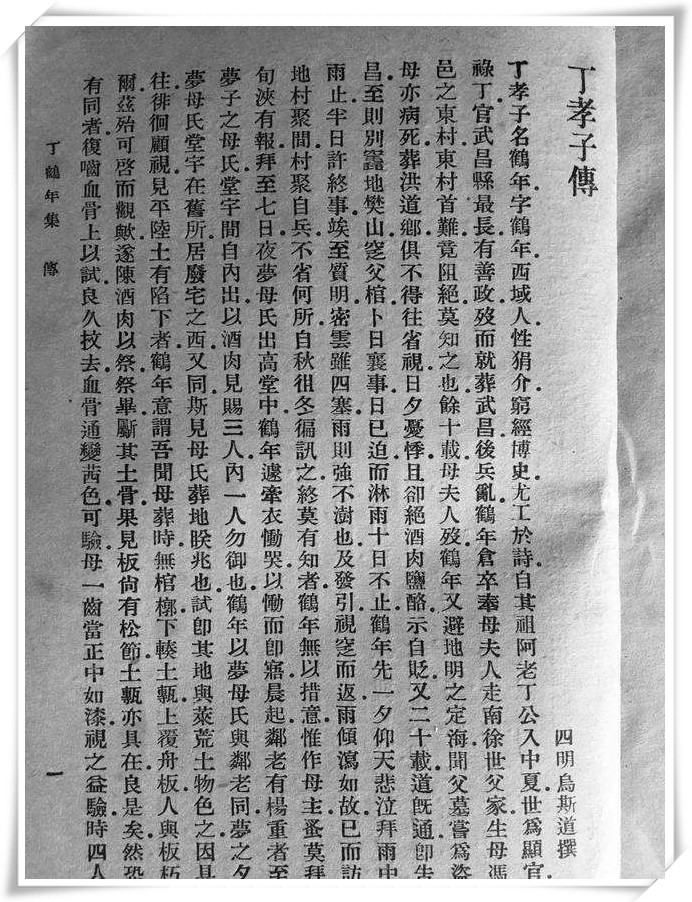 丁孝子傳
四明烏斯道撰
丁孝子名鶴年字鶴年西域人性狷介窮經博史尤工於詩自其祖阿老丁公入中夏世爲顯官
祿丁官武昌縣最長有善政歿而就葬武昌後兵亂鶴年倉卒奉母夫人走南徐世父家生母馮
邑之東村東村首難竟阻絕莫知之也餘十載母夫人歿鶴年又避地明之定海聞父墓嘗爲盜
母亦病死葬洪道鄉俱不得往省視日夕憂悸且卻絕酒肉鹽酪示自貶又二十載道旣通卽告
昌至則別竁地樊山窆父棺卜日襄事日已迫而淋雨十日不止鶴年先一夕仰天悲泣拜雨中
雨止半日許終事竢至質明密雲雖四塞雨則強不澍也及發引視窆而返雨傾瀉如故已而訪
地村聚間村聚自兵不省何所自秋徂冬徧訊之終莫有知者鶴年無以措意惟作母主蚤莫拜
旬浹有報拜至七日夜夢母氏出高堂中鶴年遽牽衣慟哭以慟而卽寤晨起鄰老有楊重者至
夢子之母氏堂宇間自內出以酒肉見賜三人內一人勿御也鶴年以夢母氏與鄰老同夢之夕
夢母氏堂宇在舊所居廢宅之西又同斯見母氏葬地睽兆也試卽其地與萊荒土物色之因具
往徘徊顧視見平陸土有陷下者鶴年意謂吾聞母葬時無棺槨下輳土甎上覆舟板人與板朽
爾茲殆可啓而觀歟遂陳酒肉以祭祭畢斸其土骨果見板尙有松節土甎亦具在良是矣然恐
有同者復嚙血骨上以試良久抆去血骨通變茜色可驗母一齒當正中如漆視之益驗時四人
丁鶴年集　傳
一